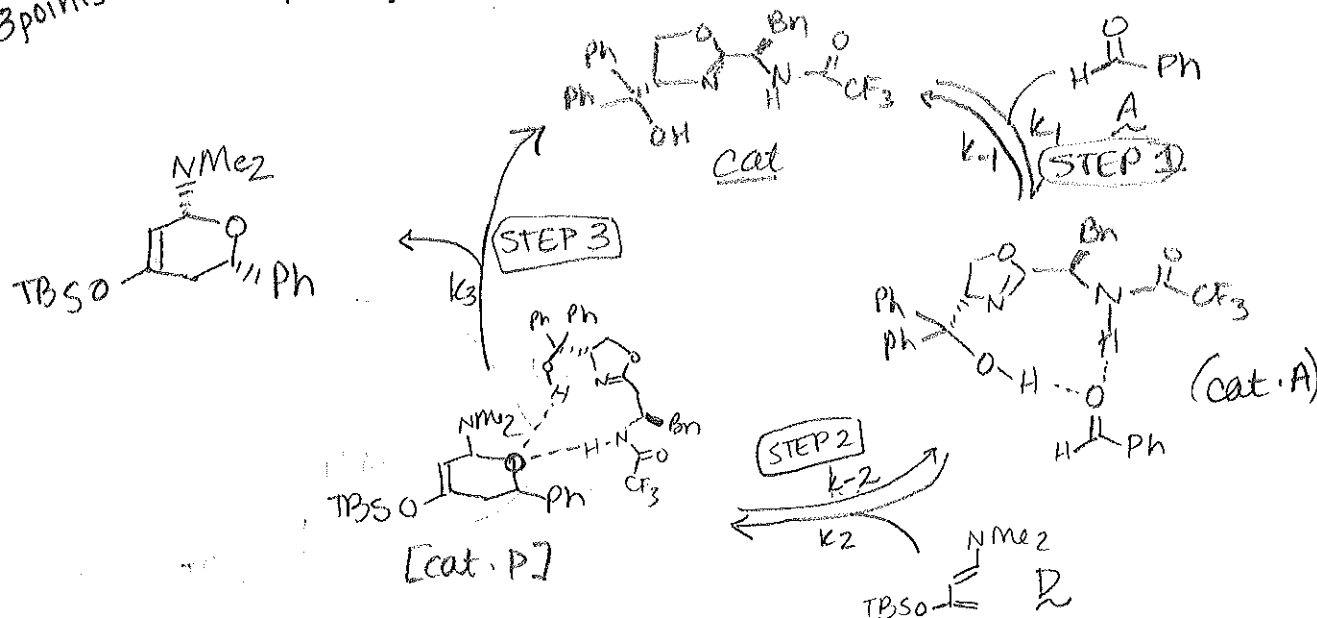 3points
Ph
Ph
OH
O
N
Bn
N
H
O
CF3
cat
O
H
Ph
A
k1
k-1
STEP 1
NMe2
O
TBSO
Ph
STEP 3
k3
Bn
O
N
Ph
Ph
N
O
CF3
H
O
H
O
H
Ph
(cat·A)
Ph
Ph
O
H
N
O
NMe2
O
H
N
Bn
O
CF3
TBSO
Ph
[cat.P]
STEP 2
k-2
k2
NMe2
TBSO
D